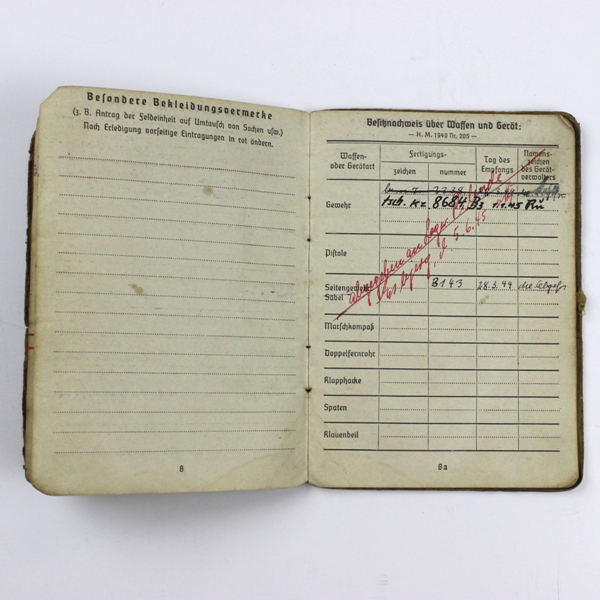 Besondere Bekleidungsvermerke
(z. B. Antrag der Feldeinheit auf Umtausch von Sachen usw.)
Nach Erledigung vorseitige Eintragungen in rot ändern.
8
Besitznachweis über Waffen und Gerät:
— H. M. 1940 Nr. 205 —
Waffen- oder Gerätart
Fertigungs-
zeichen
nummer
Tag des Empfangs
Namens-
zeichen des Gerät-
verwalters
Gewehr
tsch. Kz 8684 B3 1.1.45 Rü
Pistole
Seitengewehr
Säbel
B143 28.3.44
Marschkompaß
Doppelfernrohr
Klapphacke
Spaten
Klauenbeil
8a
abgegeben an
5.6.45